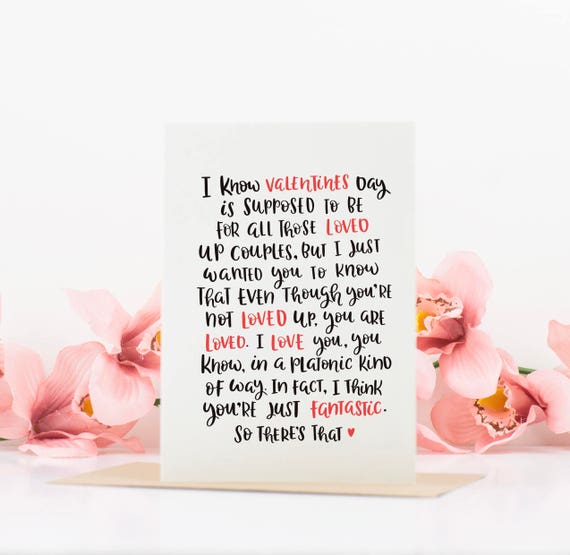 I KNOW VALENTINES DAY
is SUPPOSED TO BE
FOR ALL THOSE LOVED
UP COUPLES, BUT I JUST
WANTED YOU TO KNOW
THAT EVEN THOUGH YOU'RE
NOT LOVED UP, YOU ARE
LOVED. I LOVE YOU, YOU
KNOW, in A PLATONIC KIND
OF WAY. IN FACT, I THINK
YOU'RE JUST FANTASTIC.
SO THERE'S THAT ♥